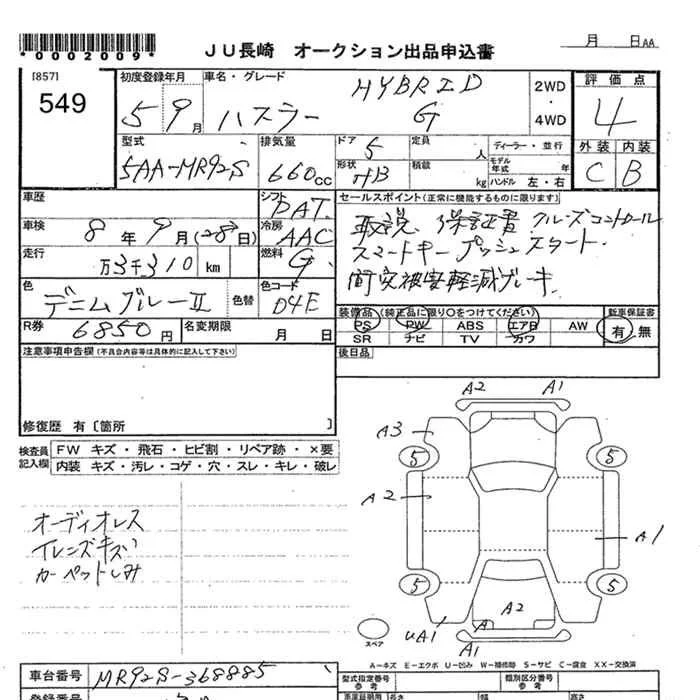 *0002009*
JU長崎 オークション出品申込書
月 日AA
[857]
549
初度登録年月
5 9月
車名・グレード
ハスラー HYBRID G
2WD
・
4WD
評価点
4
外装 内装
C B
型式
5AA-MR92S
排気量
660cc
ドア 5
形状 HB
定員 人
積載 kg
ディーラー・並行
モデル年式 年
ハンドル 左・右
車歴
車検 8年 9月(28日)
走行 万3千310km
色 デニムブルーII 色替
シフト PAT.
冷房 AAC
燃料 G
色コード D4E
R券 6850円
名変期限 月 日
セールスポイント(正常に機能するものに限ります)
取説 保証書 クルーズコントロール
スマートキー プッシュスタート.
衝突被害軽減ブレーキ.
装備品(純正品に限り○をつけてください)
PS PW ABS エアB AW
SR ナビ TV カワ
新車保証書
有・無
後日品
注意事項申告欄(不具合内容等は具体的に記入して下さい)
修復歴 有〔箇所 〕
検査員記入欄
FW キズ・飛石・ヒビ割・リペア跡・×要
内装 キズ・汚レ・コゲ・穴・スレ・キレ・破レ
オーディオレス
カーペットしみ
A2 A1
A3
5 5
A2
A1
5 5
A2
A
UA1
A1
スペア
A-キズ E-エクボ U-凹み W-補修跡 S-サビ C-腐食 XX-交換済
車台番号 MR92S-368885
型式指定番号 参考
類別区分番号 参考
登録番号
長さ
幅
高さ